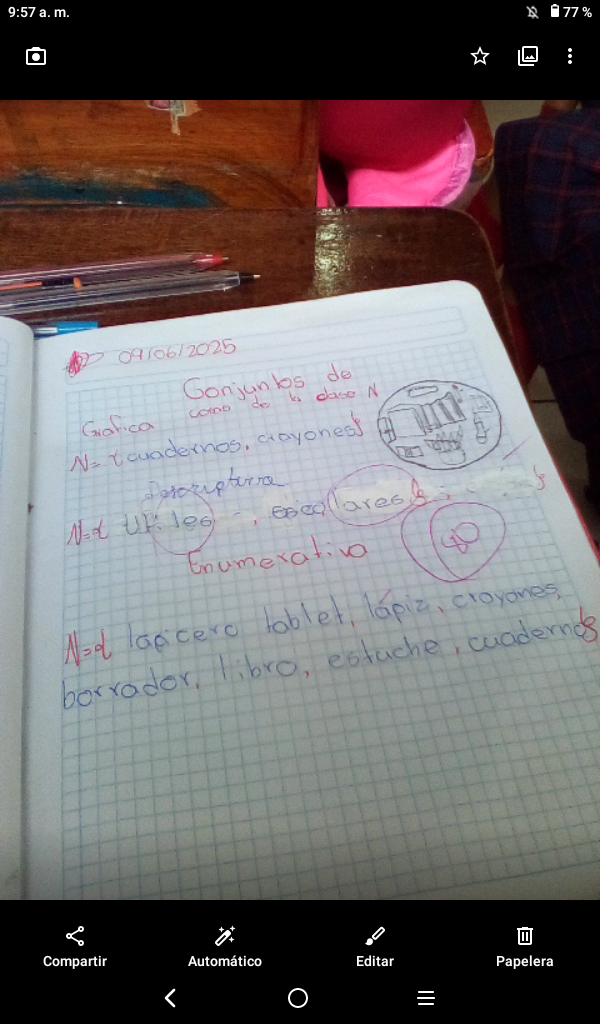 9:57 a. m.
77 %
09/06/2025
Conjuntos de
como de la clase N
Grafica
N= {cuadernos, crayones}
Descriptiva
N={ Utiles, escolares}
Enumerativa
40
N={ lapicero tablet, lápiz, crayones,
borrador, libro, estuche, cuadernos
Compartir
Automático
Editar
Papelera